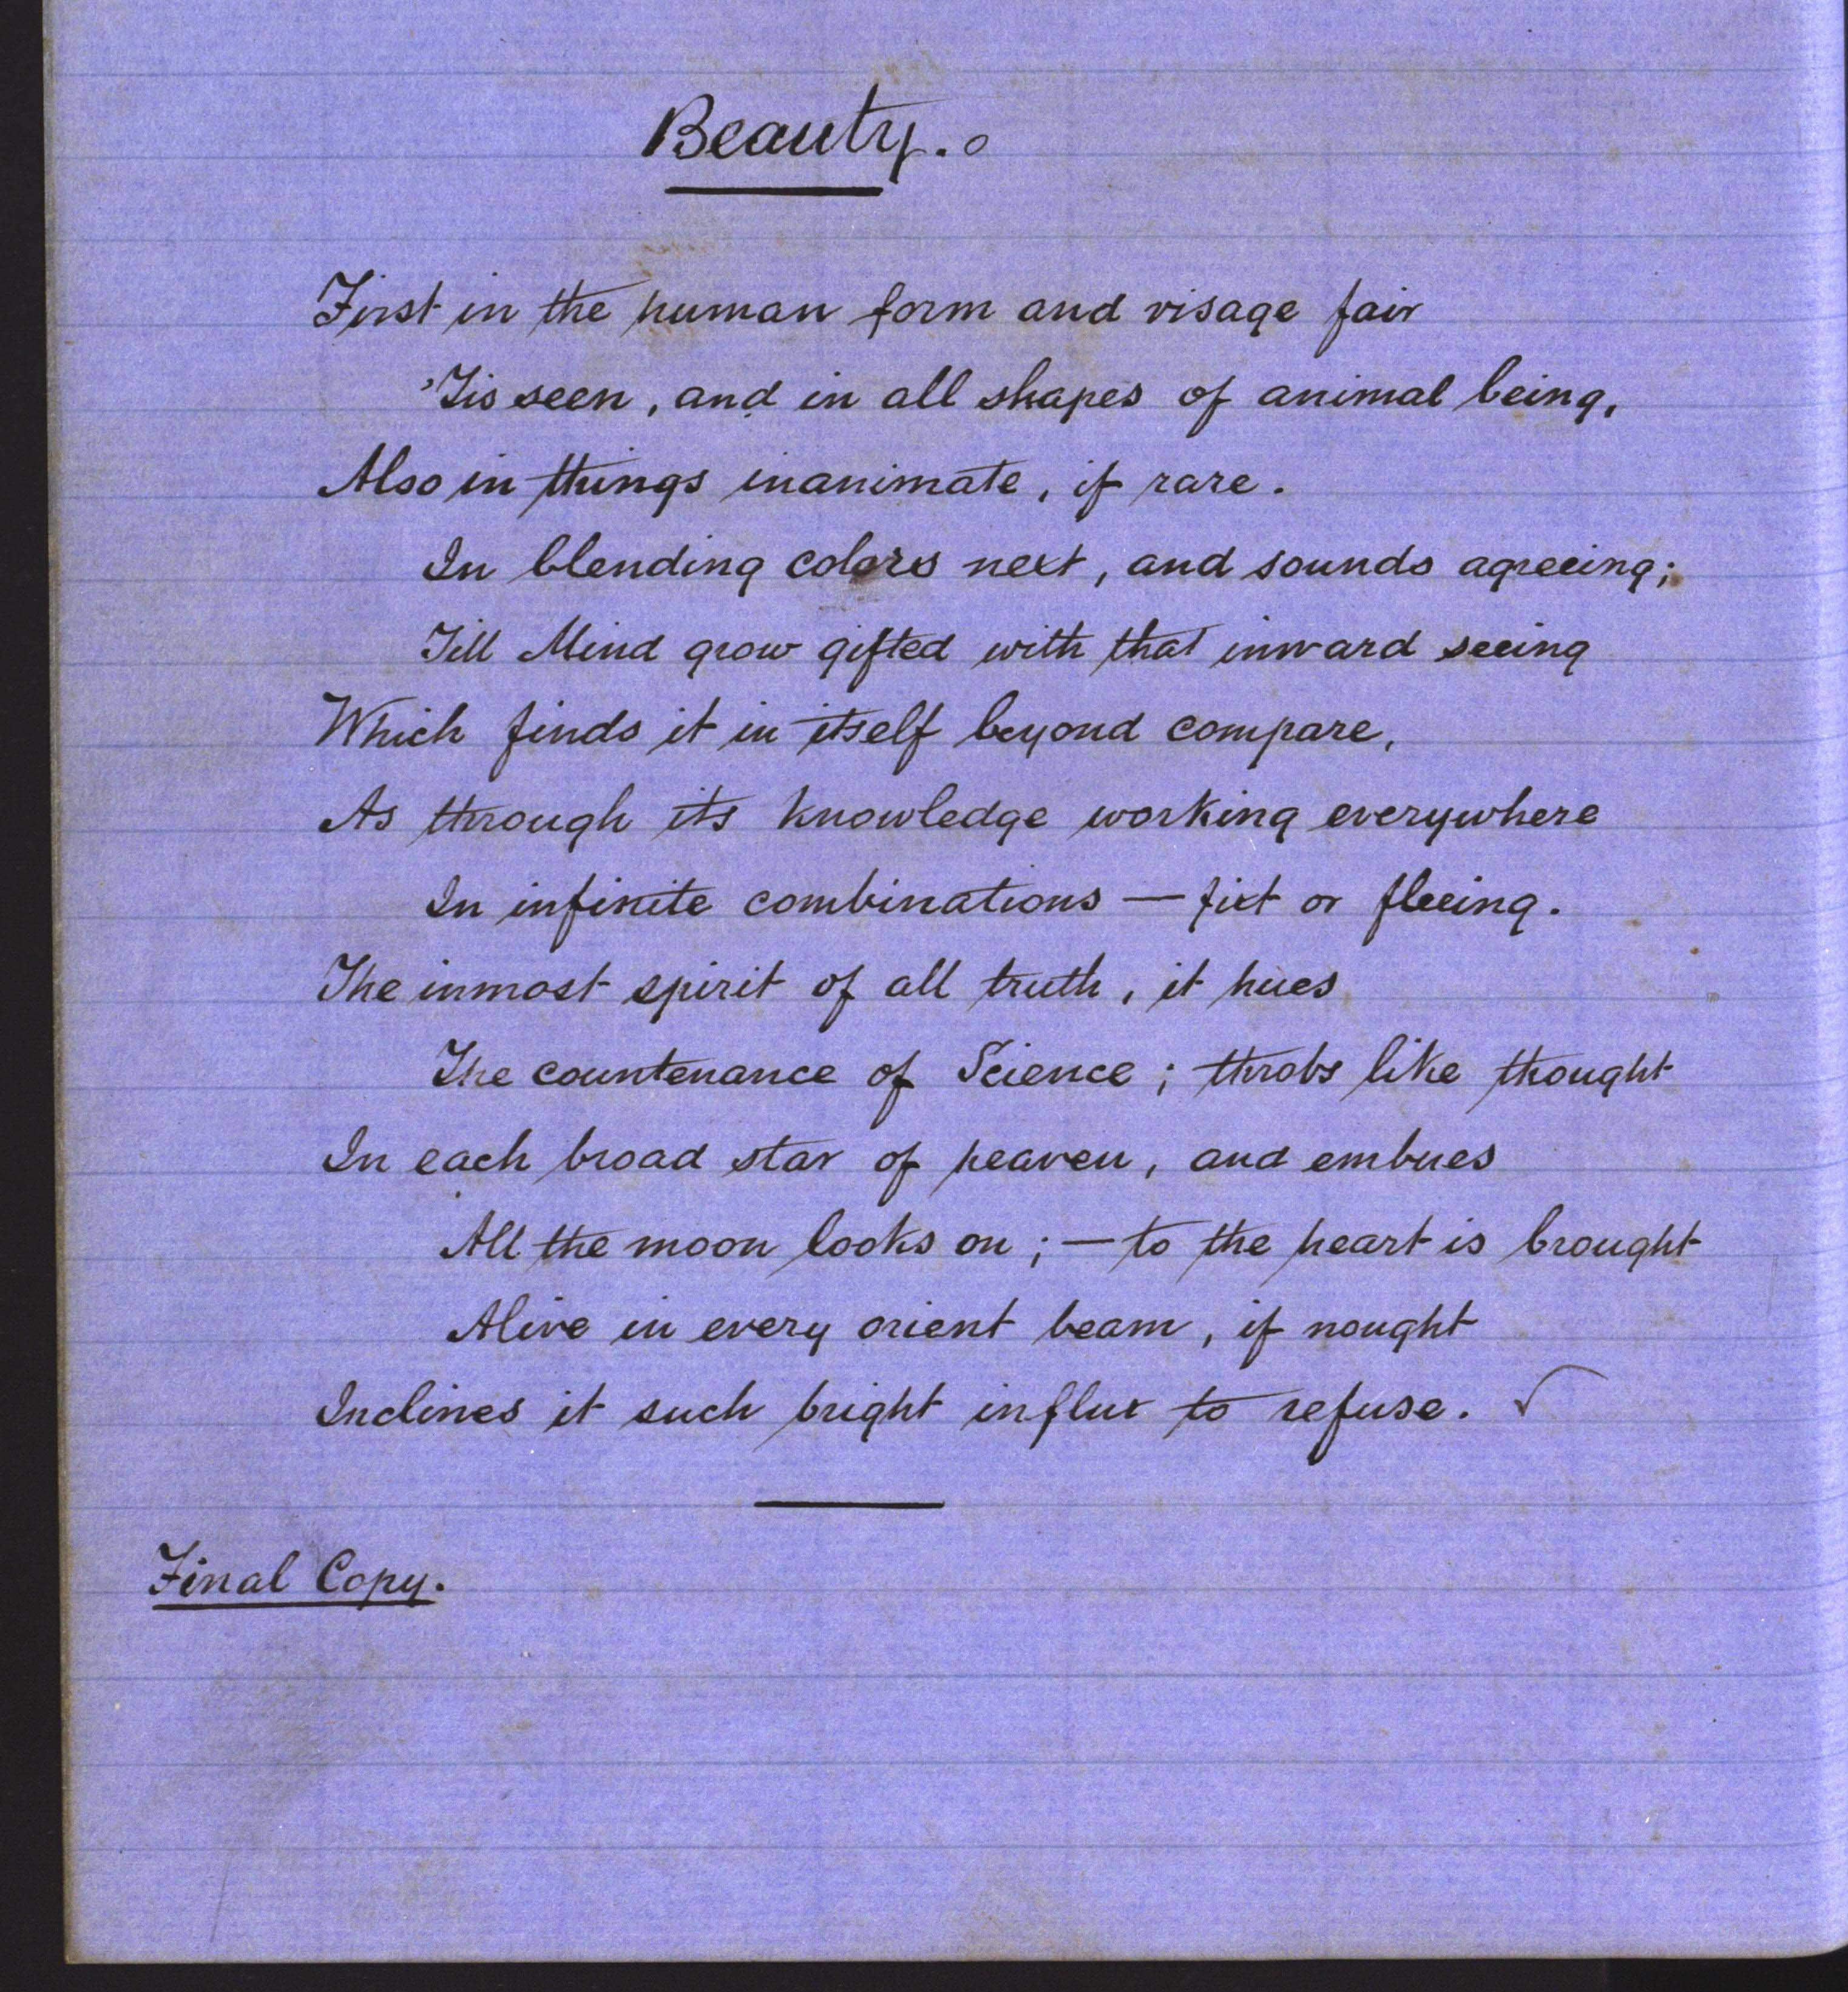 Beauty.
First in the human form and visage fair
'Tis seen, and in all shapes of animal being,
Also in things inanimate, if rare.
In blending colors next, and sounds agreeing;
Till Mind grow gifted with that inward seeing
Which finds it in itself beyond compare,
As through its knowledge working everywhere
In infinite combinations — fixt or fleeing.
The inmost spirit of all truth, it hues
The countenance of Science; throbs like thought
In each broad star of heaven, and embues
All the moon looks on; — to the heart is brought
Alive in every orient beam, if nought
Inclines it such bright influx to refuse. ✓
Final Copy.